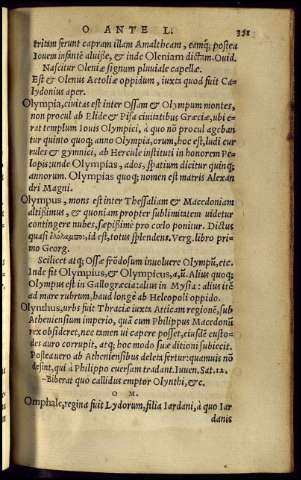 O ANTE L. 351
tritam ferunt capram illam Amaltheam, eamq; postea
Iouem infantẽ aluisse, & inde Oleniam dictam. Ouid.
Nascitur Oleniæ signum pluuiale capellæ.
Est & Olenus Aetoliæ oppidum, iuxta quod fuit Ca-
lydonius aper.
Olympia, ciuitas est inter Ossam & Olympum montes,
non procul ab Elide & Pisa ciuitatibus Græciæ, ubi e-
rat templum Iouis Olympici, à quo nõ procul ageban
tur quinto quoq; anno Olympia, orum, hoc est, ludi cur
rules & gymnici, ab Hercule instituti in honorem Pe-
lopis: unde Olympias, ados, spatium dicitur quinq;
annorum. Olympias quoq; nomen est matris Alexan
dri Magni.
Olympus, mons est inter Thessaliam & Macedoniam
altissimus, & quoniam propter sublimitatem uidetur
contingere nubes, sæpissime pro cœlo ponitur. Dictus
quasi ὁλόλαμπος, id est, totus splendens. Verg. libro pri-
mo Georg.
Scilicet atq; Ossæ frõdosum inuoluere Olympũ, etc.
Inde fit Olympius, & Olympicus, a, ũ. Alius quoq;
Olympus est in Gallogræcia: alius in Mysia: alius itẽ
ad mare rubrum, haud longè ab Heleopoli oppido.
Olynthus, urbs fuit Thraciæ iuxta Atticam regionẽ, sub
Atheniensium imperio, quã cum Philippus Macedoniæ
rex obsideret, nec tamen ui capere posset, eiusdẽ custo-
des auro corrupit, atq; hoc modo suæ ditioni subiecit.
Postea uero ab Atheniensibus deleta fertur: quamuis nõ
desint, qui à Philippo euersam tradant. Iuuen. Sat. 12.
-Biberat quo callidus emptor Olynthi, &c.
O M.
Omphale, regina fuit Lydorum, filia Iardani, à quo Iar
danis